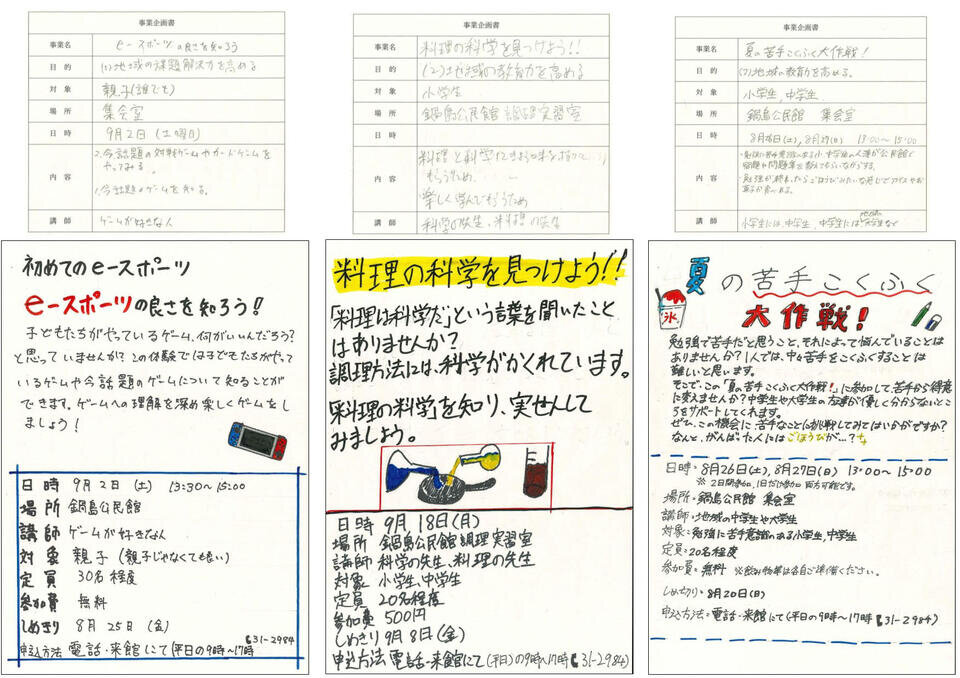 事業企画書
事業名 e-スポーツの良さを知ろう
目的 (1)地域の課題解決力を高める
対象 親子(誰でも)
場所 集会室
日時 9月2日(土曜日)
内容
2.今話題の対戦ゲームやカードゲームを
やってみる。
1.今話題のゲームを知る。
講師 ゲームが好きな人
初めてのeースポーツ
eースポーツの良さを知ろう!
子どもたちがやっているゲーム、何がいいんだろう?
と思っていませんか?この体験では子どもたちがやって
いるゲームや今話題のゲームについて知ることが
できます。ゲームへの理解を深め楽しくゲームをし
ましょう!
日時 9月2日(土) 13:30~15:00
場所 鍋島公民館
講師 ゲームが好きな人
対象 親子(親子じゃなくても良い)
定員 30名程度
参加費 無料
しめきり 8月25日(金)
申込方法 電話・来館にて(平日の9時~17時 31-2984
事業企画書
事業名 料理の科学を見つけよう!!
目的 (2)地域の教育力を高める
対象 小学生
場所 鍋島公民館 調理実習室
日時
内容
料理と科学にきょう味を持って
もらうため、
楽しく学んでもらうため
講師 科学の先生、料理の先生
料理の科学を見つけよう!!
「料理は科学だ」という言葉を聞いたこと
はありませんか?
調理方法には、科学がかくれています。
「料理の科学」を知り、実せんして
みましょう。
日時 9月18日(月)
場所 鍋島公民館調理実習室
講師 科学の先生、料理の先生
対象 小学生、中学生
定員 20名程度
参加費 500円
しめきり 9月8日(金)
申込方法 電話・来館にて(平日の9時~17時 31-2984)
事業企画書
事業名 夏の苦手こくふく大作戦!
目的 (2)地域の教育力を高める。
対象 小学生、中学生
場所 鍋島公民館 集会室
日時 8月26日(土)、8月27日(日) 13:00~15:00
内容
講師 小学生には、中学生、中学生には、地域の大学生など
夏の苦手こくふく
大作戦!
氷
勉強で苦手だと思うこと、それによって悩んでいることは
ありませんか?1人では、中々苦手をこくふくすることは
難しいと思います。
そこで、この「夏の苦手こくふく大作戦!」に参加して、苦手から得意
に変えませんか?中学生や大学生の方達が優しく分からないとこ
ろをサポートしてくれます。
ぜひ、この機会に苦手なことに挑戦してみてはいかがですか?
なんと、がんばった人にはごほうびが…?
日時・8月26日(土)、8月27日(日) 13:00~15:00
※ 2日間参加、1日だけ参加 両方可能です。
場所・鍋島公民館 集会室
講師・地域の中学生や大学生
対象・勉強に苦手意識のある小学生、中学生
定員・20名程度
参加費・無料 ※飲み物等は各自ご準備ください。
しめ切り・8月20日(日)
申込方法・電話・来館にて(平日の9時~17時 31-2984)